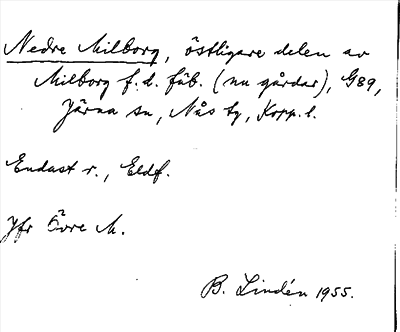 Nedre Milborg, östligare delen av
Milborg f.d. fäb. (nu gårdar), G89,
Järna sn, Nås tg, Kopp. l.
Endast r., Eldf.
Jfr Övre M.
B. Lindén 1955.